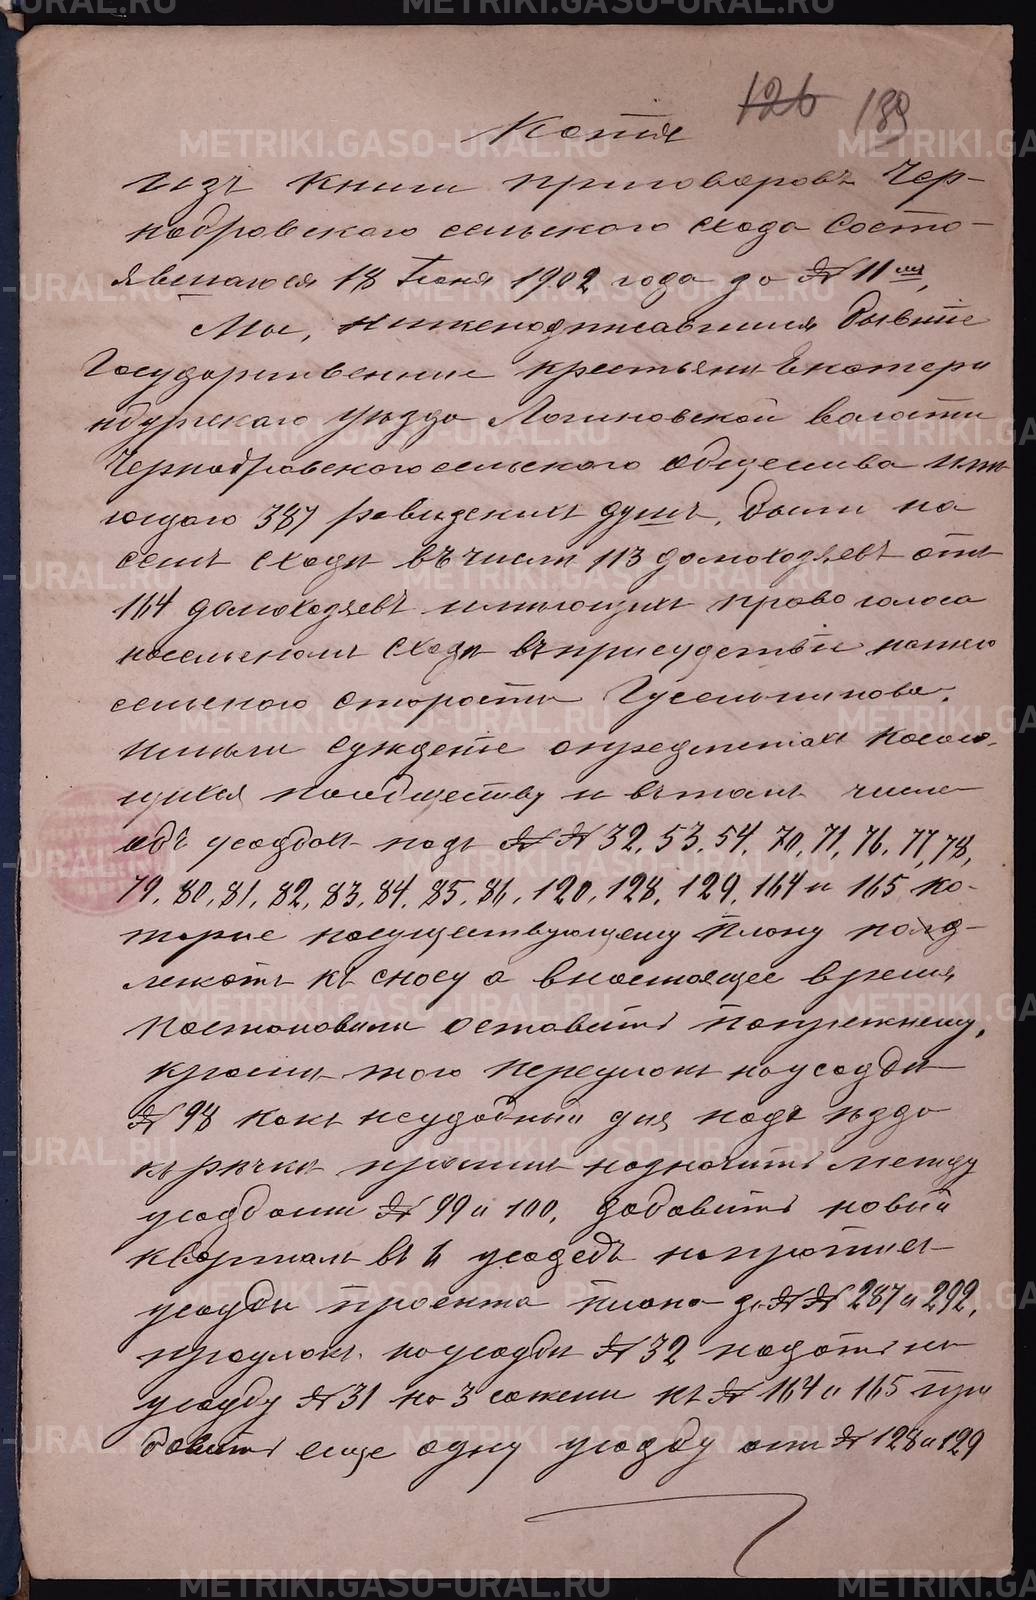 126 189
Копія
Изъ книги приговоровъ Чер-
нобровскаго сельскаго схода состо-
явшагося 18 Іюня 1902 года за № 11мъ,
Мы, нижеподписавшіися бывшіе
Государственные крестьяне Екатери
нбургскаго уѣзда Логиновской волости
Чернобровскаго сельскаго общества имѣ
ющаго 387 ревизскихъ душъ, были на
семъ сходѣ въ числѣ 113 домохозяевъ отъ
164 домохозяевъ имѣющихъ право голоса
насельскомъ сходѣ въ присудствіи нашего
сельского старосты Гусельникова.
имѣли сужденіе опредметахъ касаю-
щихся пообществу и въ томъ числѣ
объ усадбахъ подъ №№ 32, 53, 54, 70, 71, 76, 77, 78,
79, 80, 81, 82, 83, 84, 85, 86, 120, 128, 129, 164 и 165 ко-
торые посуществующему плану подд-
лежатъ къ сносу а внастоящее время
постановили оставить попрежнему,
кромѣ того переулокъ поусадбѣ
№ 98 какъ неудобный для подъ ѣзда
къ рѣчкѣ просимъ назначить между
усадбами № 99 и 100, добавить новый
кварталъ въ 6 усадебъ напротивъ
усадьбы проекта плана за №№ 287 и 292,
проулокъ поусадьбѣ № 32 подать на
усадьбу № 31 на 3 сажени къ № 164 и 165 при
бавить еще одну усадбу отъ № 128 и 129
METRIKI.GASO-URAL.RU